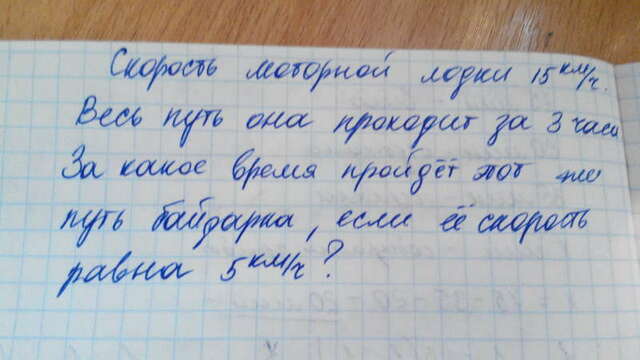 Скорость моторной лодки 15 км/ч.
Весь путь она проходит за 3 часа
За какое время пройдёт этот же
путь байдарка, если её скорость
равна 5 км/ч?